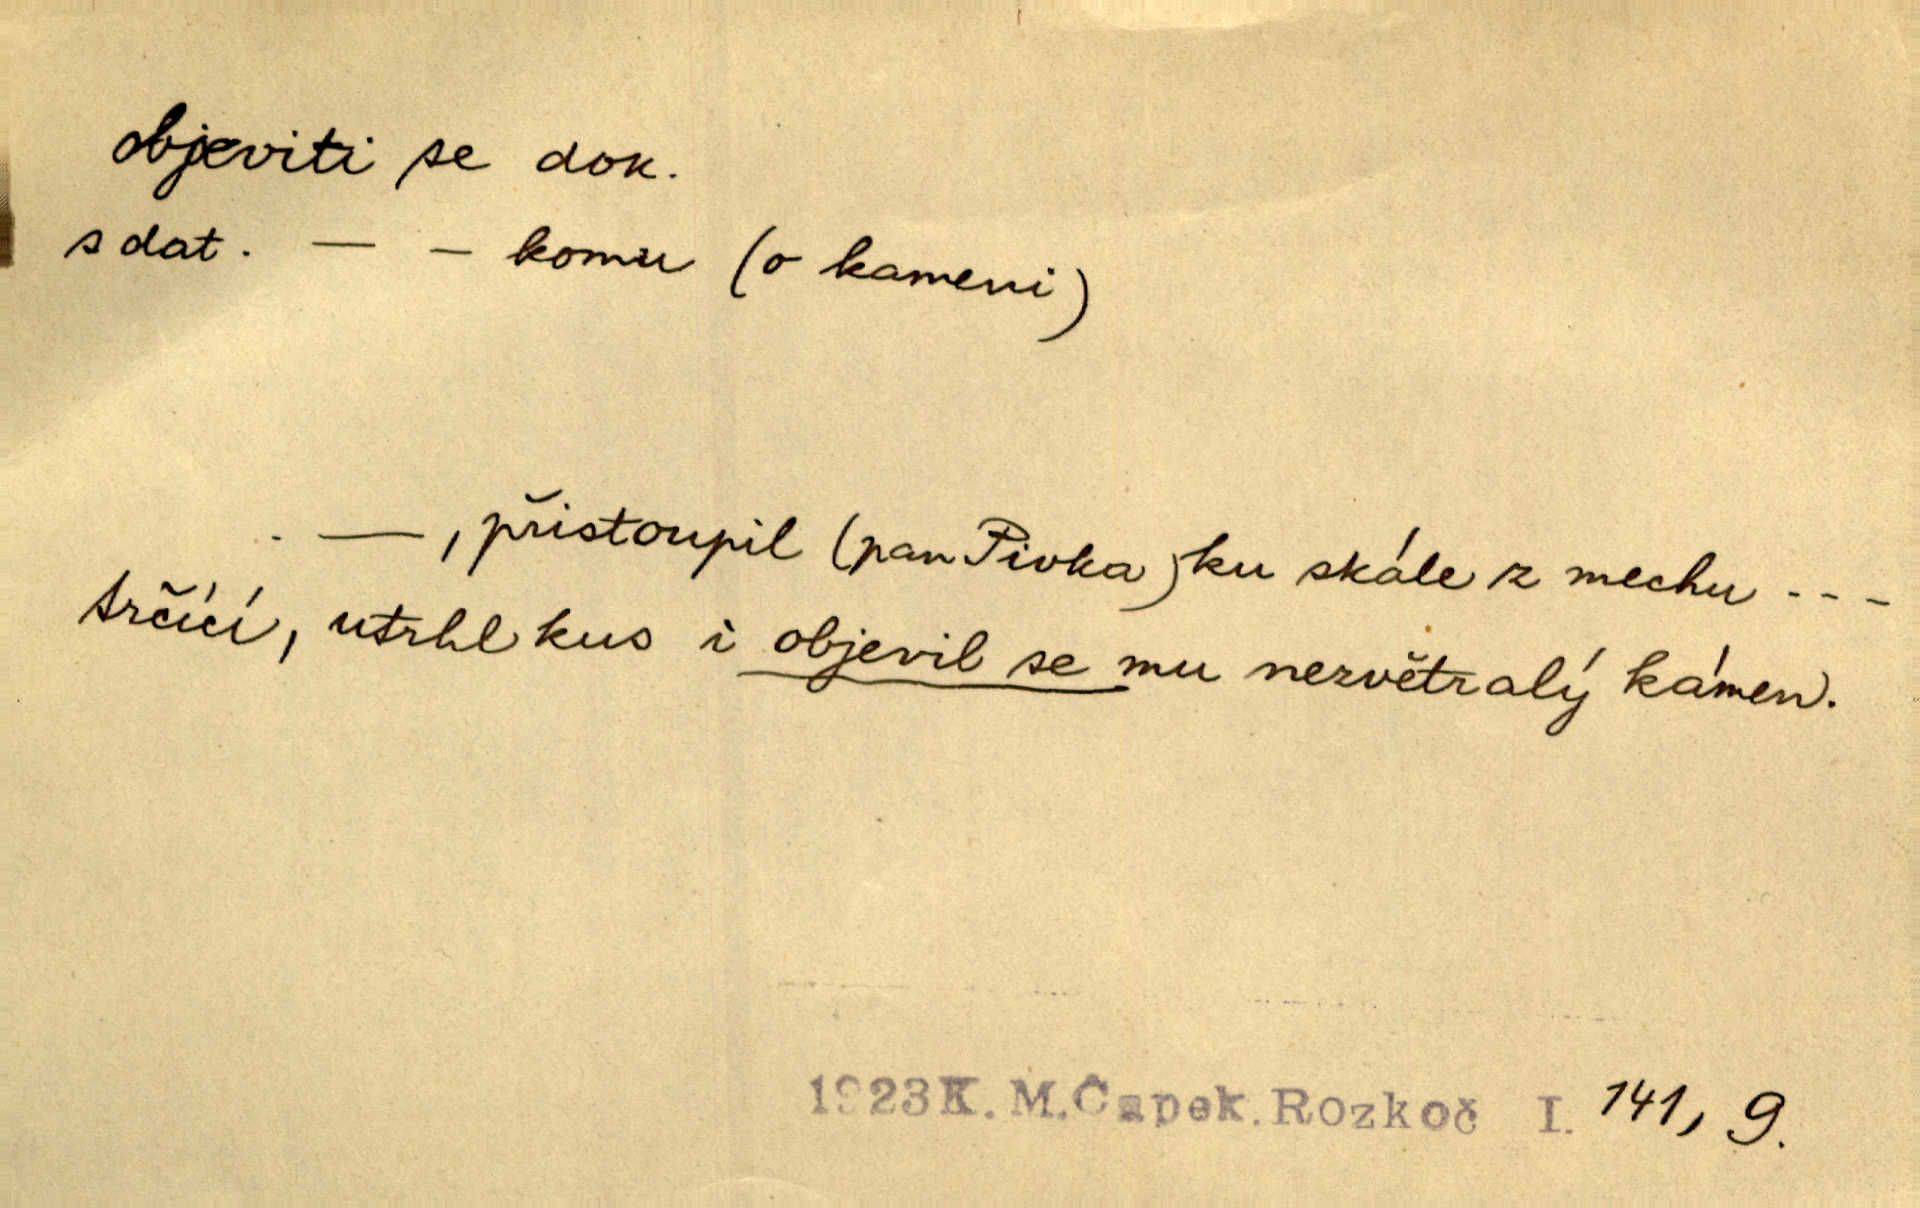 objeviti se dok.
s dat. — – komu (o kameni)
. —, přistoupil (pan Pivka) ku skále z mechu - - -
trčící, utrhl kus i objevil se mu nezvětralý kámen.
1923 K. M. Čapek. Rozkoč I. 141, 9.